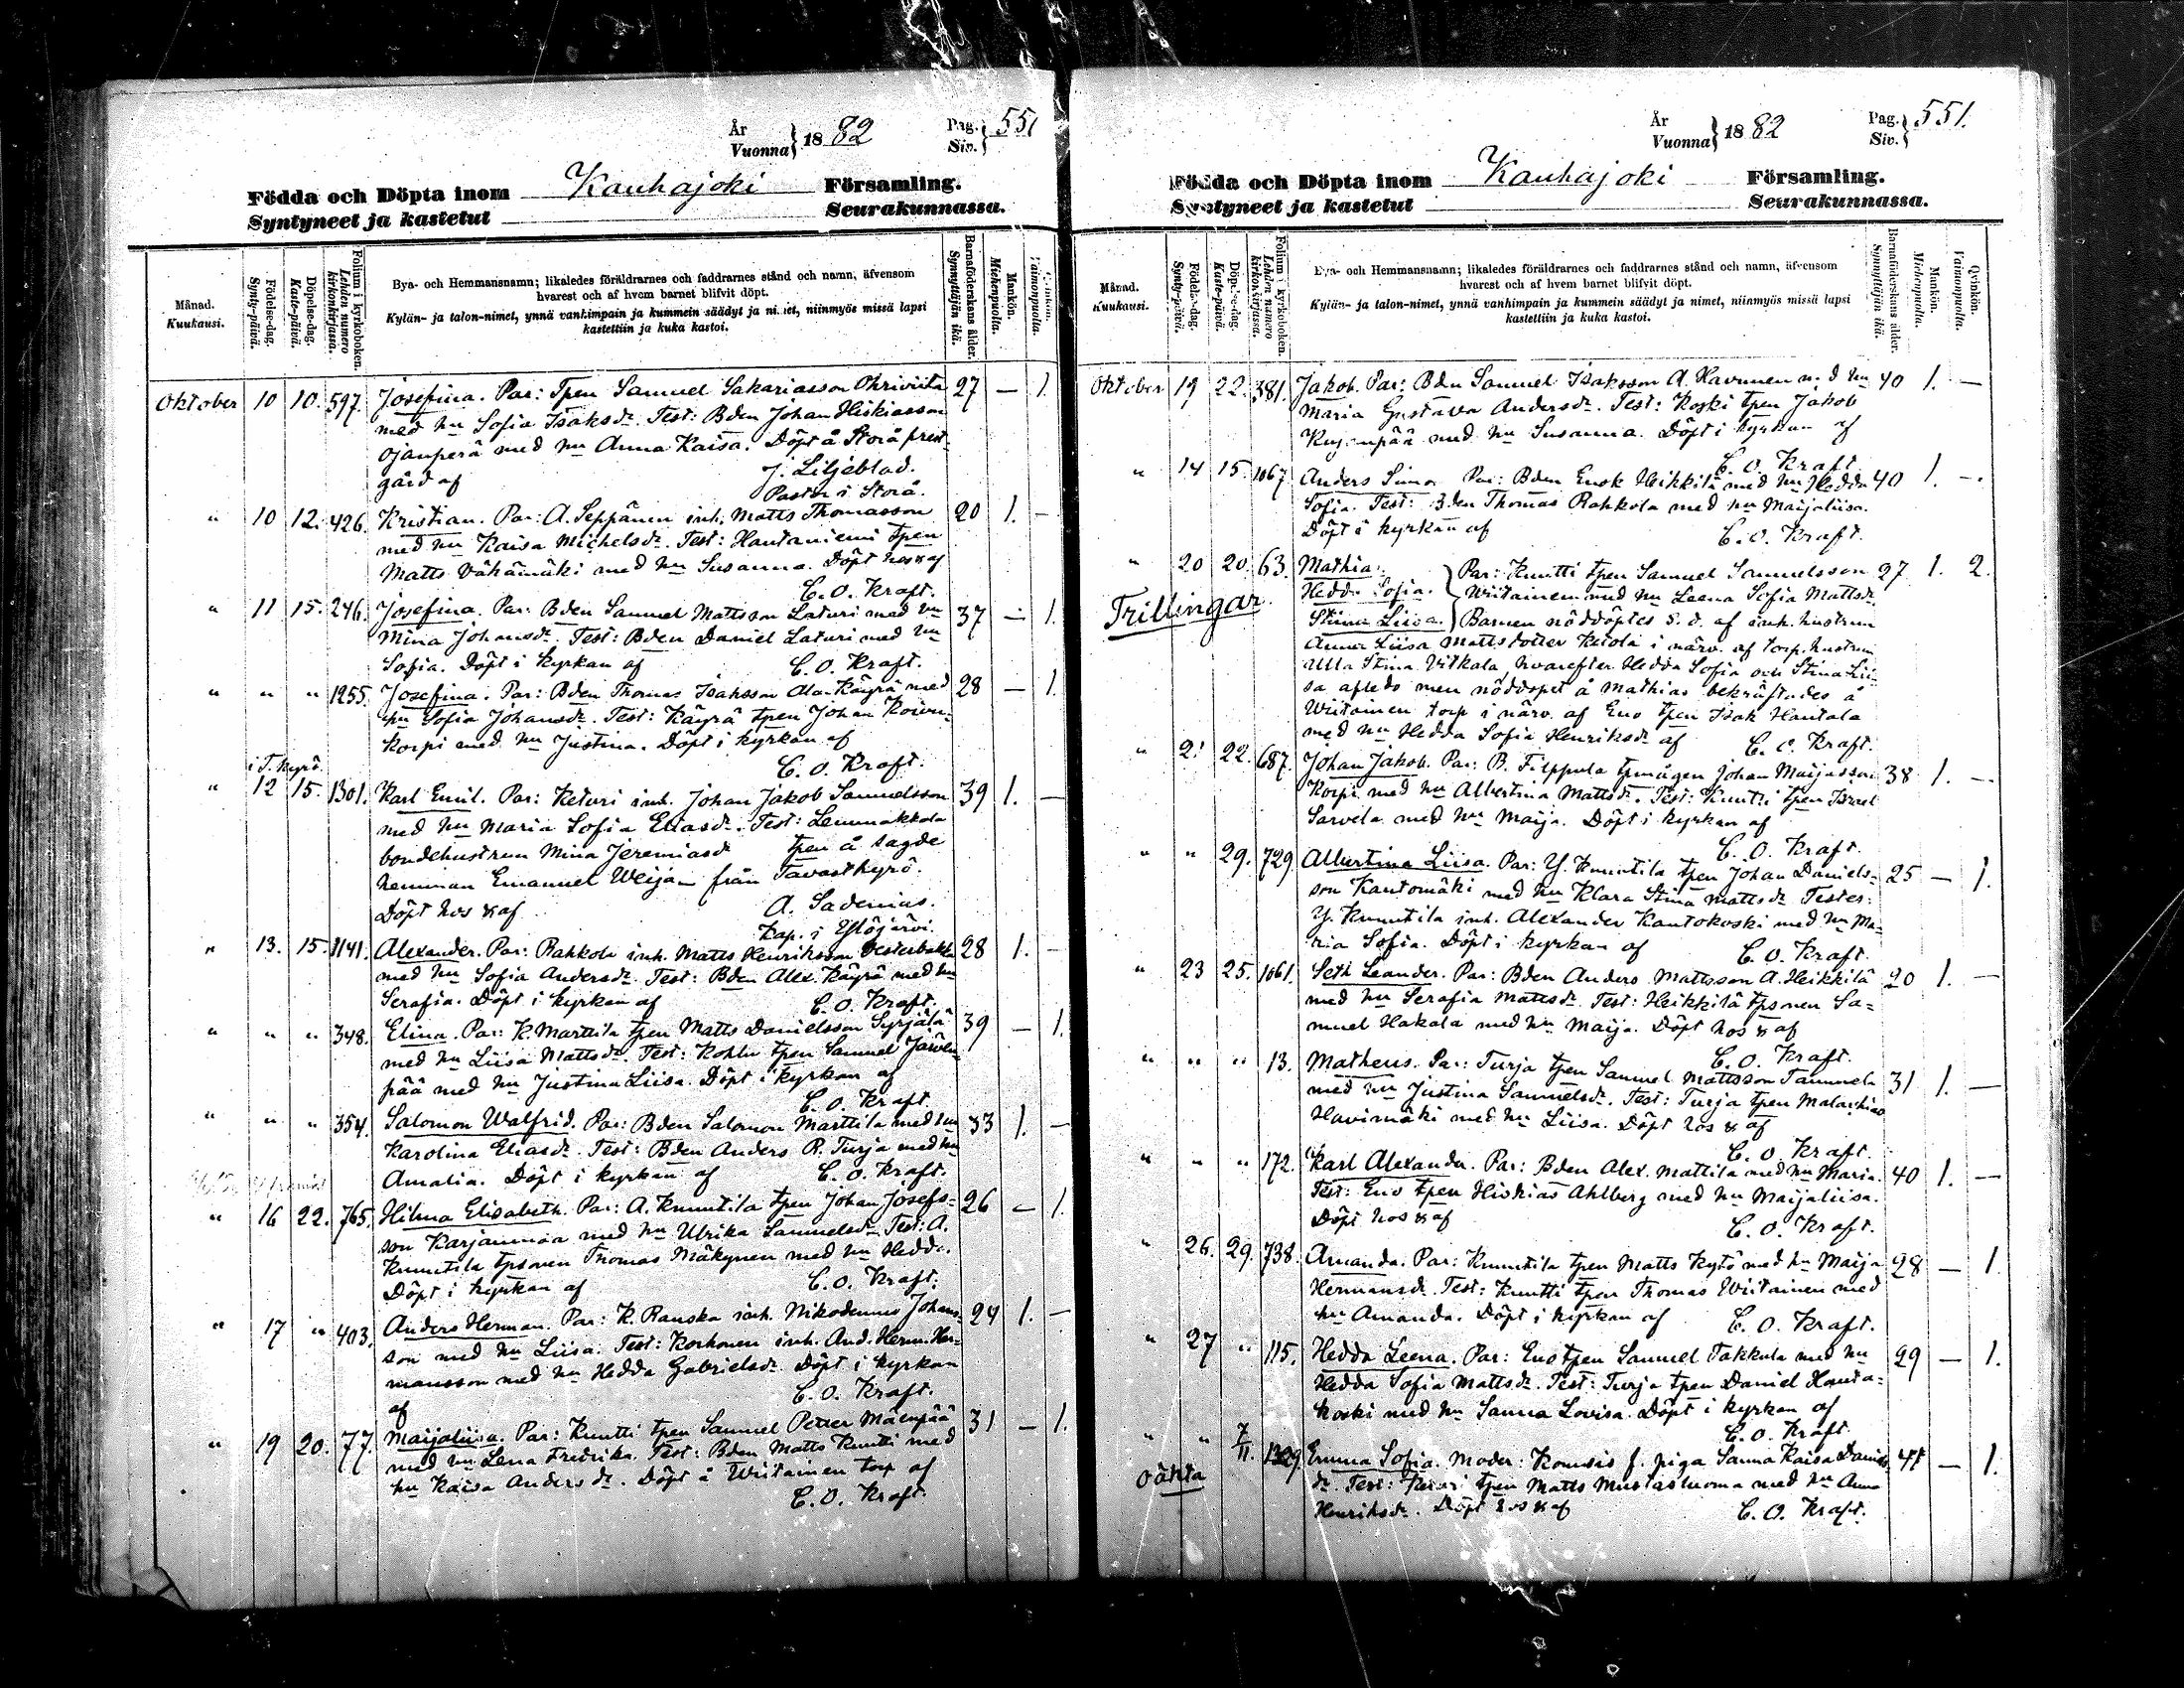 År
Vuonna } 1882 Pag. Siv. } 551
Födda och Döpta inom Kauhajoki Församling.
Syntyneet ja kastetut Seurakunnassa.
Månad. Kuukausi.
Födelse-dag. Synty-päivä.
Döpelse-dag. Kaste-päivä.
Folium i kyrkoboken. Lehden numero kirkonkirjassa.
Bya- och Hemmansnamn; likaledes föräldrarnes och faddrarnes stånd och namn, äfvensom
hvarest och af hvem barnet blifvit döpt.
Kylän- ja talon-nimet, ynnä vanhimpain ja kummein säädyt ja nimet, niinmyös missä lapsi
kastettiin ja kuka kastoi.
Barnaföderskans ålder. Synnyttäjän ikä.
Mankön. Miehenpuolta.
Qvinkön. Vaimonpuolta.
Oktober 10 10. 597. Josefina. Par: Tpen Samuel Sakariasson Ohriviita 27 — 1.
med hu Sofia Isaksdr. Test: Bden Johan Hiskiasson
Ojanperä med hu Anna Kaisa. Döpt å Storå prest-
gård af J. Liljeblad.
Pastor i Storå.
" 10 12. 426. Kristian. Par: A. Seppänen inh. Matts Thomasson 20 1. —
med hu Kaisa Michelsdr. Test: Hautaniemi tpen
Matts Vähämäki med hu Susanna. Döpt hos & af
C. O. Kraft.
" 11 15. 246. Josefina. Par: Bden Samuel Mattsson Laturi med hu 37 — 1.
Mina Johansdr. Test: Bden Daniel Laturi med hu
Sofia. Döpt i kyrkan af C. O. Kraft.
" " " 1255. Josefina. Par: Bden Thomas Isaksson Ala-Käyrä med 28 — 1.
hu Sofia Johansdr. Test: Käyrä tpen Johan Koivu-
korpi med hu Justina. Döpt i kyrkan af
C. O. Kraft.
i T. kyrö.
" 12 15. 1301. Karl Emil. Par: Keturi inh. Johan Jakob Samuelsson 39 1. —
med hu Maria Sofia Eliasdr. Test: Lemmakkola
bondehustrun Mina Jeremiasdr tpen å sagde
hemman Emanuel Weijan från Tavastkyrö.
Döpt hos & af A. Sadenius.
Kap. i Ylöjärvi.
" 13. 15. 1141. Alexander. Par: Rahkola inh. Matts Henriksson Vesterbakka 28 1. —
med hu Sofia Andersdr. Test: Bden Alex. Käyrä med hu
Serafia. Döpt i kyrkan af C. O. Kraft.
" " " 348. Elina. Par: K. Marttila tpen Matts Danielsson Syrjälä 39 — 1.
med hu Liisa Mattsdr. Test: Kohlu tpen Samuel Järven-
pää med hu Justina Liisa. Döpt i kyrkan af
C. O. Kraft.
" " " 354. Salomon Walfrid. Par: Bden Salomon Marttila med hu 33 1. —
Karolina Eliasdr. Test: Bden Anders R. Turja med hu
Amalia. Döpt i kyrkan af C. O. Kraft.
" 16 22. 765. Hilma Elisabeth. Par: A. Knuutila tpen Johan Josefs- 26 — 1.
son Karjanmaa med hu Ulrika Samuelsdr. Test: A.
Knuutila tpsonen Thomas Mäkynen med hu Hedda.
Döpt i kyrkan af C. O. Kraft.
" 17 " 403. Anders Herman. Par: K. Ranska inh. Nikodemus Johans- 24 1. —
son med hu Liisa. Test: Korhonen inh. And. Herm. Her-
mansson med hu Hedda Gabrielsdr. Döpt i kyrkan
af C. O. Kraft.
" 19 20. 77. Maijaliisa. Par: Knuuti tpen Samuel Petter Mäenpää 31 — 1.
med hu Lena Fredrika. Test: Bden Matts Knuuti med
hu Kaisa Andersdr. Döpt å Wiitainen torp af
C. O. Kraft.
År
Vuonna } 1882 Pag. Siv. } 551.
Födda och Döpta inom Kauhajoki Församling.
Syntyneet ja kastetut Seurakunnassa.
Månad. Kuukausi.
Födelse-dag. Synty-päivä.
Döpelse-dag. Kaste-päivä.
Folium i kyrkoboken. Lehden numero kirkonkirjassa.
Bya- och Hemmansnamn; likaledes föräldrarnes och faddrarnes stånd och namn, äfvensom
hvarest och af hvem barnet blifvit döpt.
Kylän- ja talon-nimet, ynnä vanhimpain ja kummein säädyt ja nimet, niinmyös missä lapsi
kastettiin ja kuka kastoi.
Barnaföderskans ålder. Synnyttäjän ikä.
Mankön. Miehenpuolta.
Qvinkön. Vaimonpuolta.
Oktober 19 22. 381. Jakob. Par: Bdn Samuel Isaksson A. Havunen med hu 40 1. —
Maria Gustava Andersdr. Test: Koski tpen Jakob
med hu Susanna. Döpt i kyrkan af
C. O. Kraft.
" 14 15. 1067. Anders Simon Par: Bden Enok Heikkilä med hu Hedda 40 1. —.
Sofia. Test: Bden Thomas Rahkola med hu Maijaliisa.
Döpt i kyrkan af C. O. Kraft.
" 20 20. 63. Mathias. Par: Knuuti tpen Samuel Samuelsson 27 1. 2.
Trillingar. Hedda Sofia. Wiitainen med hu Leena Sofia Mattsdr.
Stiina Liisa. Barnen nöddöptes s. d. af inh. hustrun
Anna Liisa Mattsdotter Ketola i närv. af torp. hustrun
Ulla Stina Vitkala, hvarefter Hedda Sofia och Stina Lii-
sa afledo men nöddopet å Mathias bekräftades å
Wiitainen torp i närv. af Eno tpen Isak Hautala
med hu Hedda Sofia Henriksdr af C. O. Kraft.
" 21 22. 687. Johan Jakob. Par: B. Filppula tpmågen Johan Maijasson 38 1. —
Korpi med hu Albertina Mattsdr. Test: Knuuti tpen Israel
Sarvela med hu Maija. Döpt i kyrkan af
C. O. Kraft.
" " 29. 729 Albertina Liisa. Par: Y. Knuutila tpen Johan Daniels- 25 — 1.
son Kantomäki med hu Klara Stina Mattsdr. Testes:
Y. Knuutila inh. Alexander Kantokoski med hu Ma-
ria Sofia. Döpt i kyrkan af C. O. Kraft.
" 23 25. 1061. Seth Leander. Par: Bden Anders Mattsson A. Heikkilä 20 1. —
med hu Serafia Mattsdr. Test: Heikkilä tpsonen Sa-
muel Hakala med hu Maija. Döpt hos & af
C. O. Kraft.
" " " 13. Matheus. Par: Turja tpen Samuel Mattsson Tammela 31 1. —
med hu Justina Samuelsdr. Test: Turja tpen Malachias
Havirmäki med hu Liisa. Döpt hos & af
C. O. Kraft.
" " " 172. Karl Alexander. Par: Bden Alex. Mattila med hu Maria. 40 1. —
Test: Eno tpen Hiskias Ahlberg med hu Maijaliisa.
Döpt hos & af C. O. Kraft.
" 26. 29. 738. Amanda. Par: Knuutila tpen Matts Kytö med hu Maija 28 — 1.
Hermansdr. Test: Knuuti tpen Thomas Wiitainen med
hu Amanda. Döpt i kyrkan af C. O. Kraft.
" 27 " 115. Hedda Leena. Par: Eno tpen Samuel Takkula med hu 29 — 1.
Hedda Sofia Mattsdr. Test: Turja tpen Daniel Hauta-
koski med hu Sanna Lovisa. Döpt i kyrkan af
C. O. Kraft.
" " 7/11. 1329. Emma Sofia. Moder: Komsis f. piga Sanna Kaisa Daniels- 41 — 1.
oäkta dr. Test: tpen Matts Mustasluoma med hu Anna
Henriksdr. Döpt hos & af C. O. Kraft.